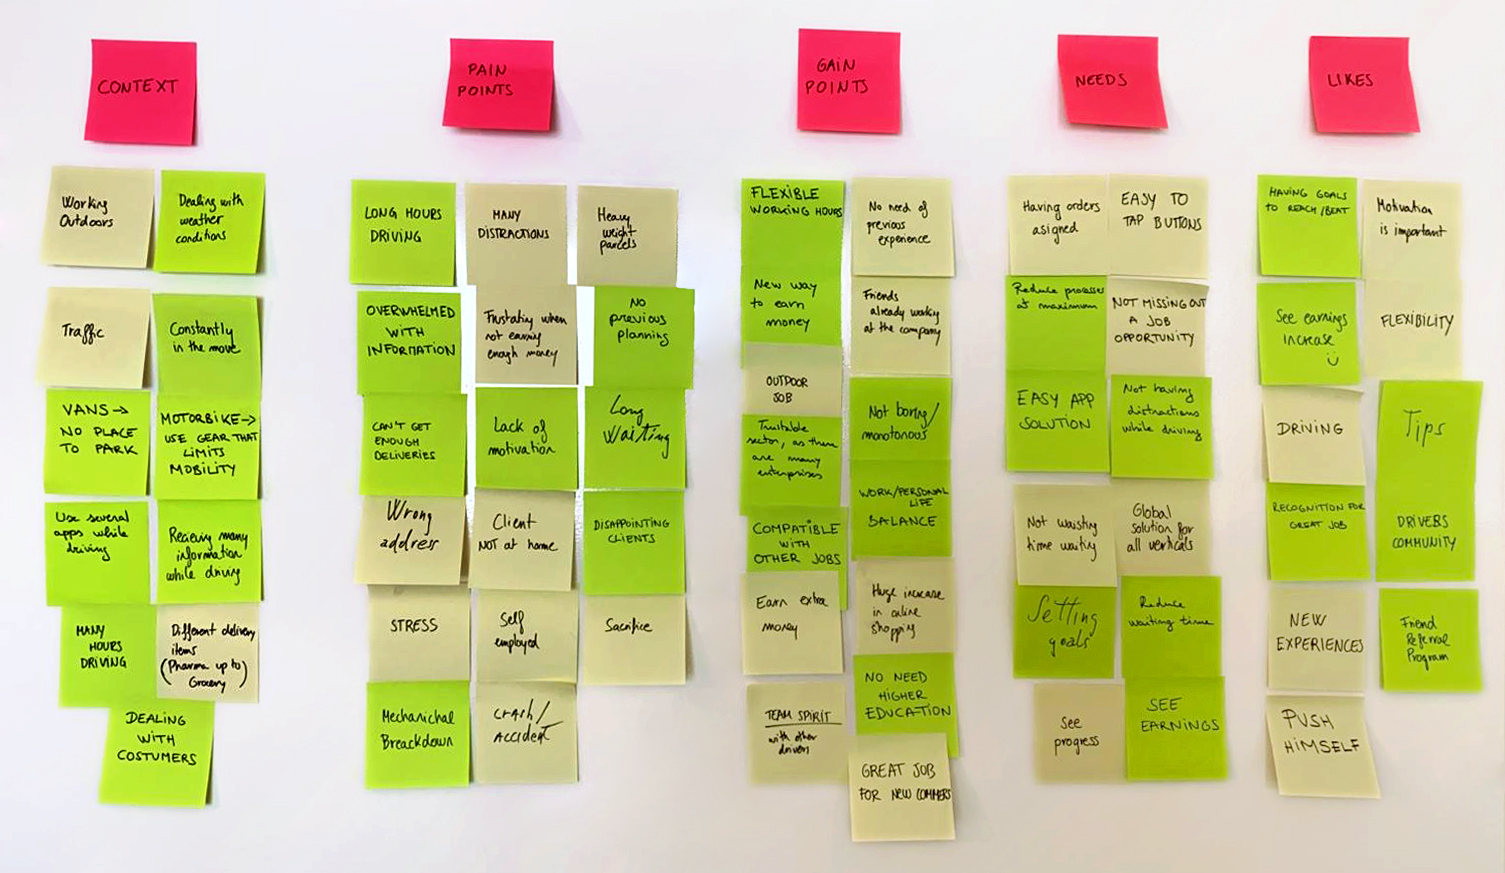 CONTEXT
Working
Outdoors
Dealing with
weather
conditions
Traffic
Constantly
in the move
VANS →
NO PLACE
TO PARK
MOTORBIKE →
USE GEAR THAT
LIMITS
MOBILITY
Use several
apps while
driving
Recieving many
information
while driving
MANY
HOURS
DRIVING
Different delivery
items
(Pharma up to)
Grocery
DEALING
WITH
COSTUMERS
PAIN
POINTS
LONG HOURS
DRIVING
MANY
DISTRACTIONS
Heavy
weight
parcels
OVERWHELMED
WITH
INFORMATION
Frustating when
not earning
enough money
NO
previous
planning
CAN'T GET
ENOUGH
DELIVERIES
Lack of
motivation
Long
Waiting
Wrong
address
Client
NOT at home
DISAPPOINTING
CLIENTS
STRESS
Self
employed
Sacrifice
Mechanichal
Breackdown
CRASH/
ACCIDENT
GAIN
POINTS
FLEXIBLE
WORKING HOURS
No need of
previous
experience
New way
to earn
money
Friends
already working
at the company
OUTDOOR
JOB
Not boring/
monotonous
sector, as there
are many
enterprises
WORK/PERSONAL
LIFE
BALANCE
COMPATIBLE
WITH
OTHER JOBS
Earn extra
money
Huge increase
in online
shopping
NO NEED
HIGHER
EDUCATION
TEAM SPIRIT
with other
drivers
GREAT JOB
FOR NEW COMMERS
NEEDS
Having orders
asigned
EASY TO
TAP BUTTONS
Reduce processes
at maximum
NOT MISSING OUT
A JOB
OPPORTUNITY
EASY APP
SOLUTION
Not having
distractions
while driving
Not waisting
time waiting
Global
solution for
all verticals
Setting
goals
Reduce
waiting time
See
progress
SEE
EARNINGS
LIKES
HAVING GOALS
TO REACH/BEAT
Motivation
is important
See earnings
increase
FLEXIBILITY
DRIVING
Tips
RECOGNITION FOR
GREAT JOB
DRIVERS
COMMUNITY
NEW
EXPERIENCES
Friend
Referral
Program
PUSH
HIMSELF